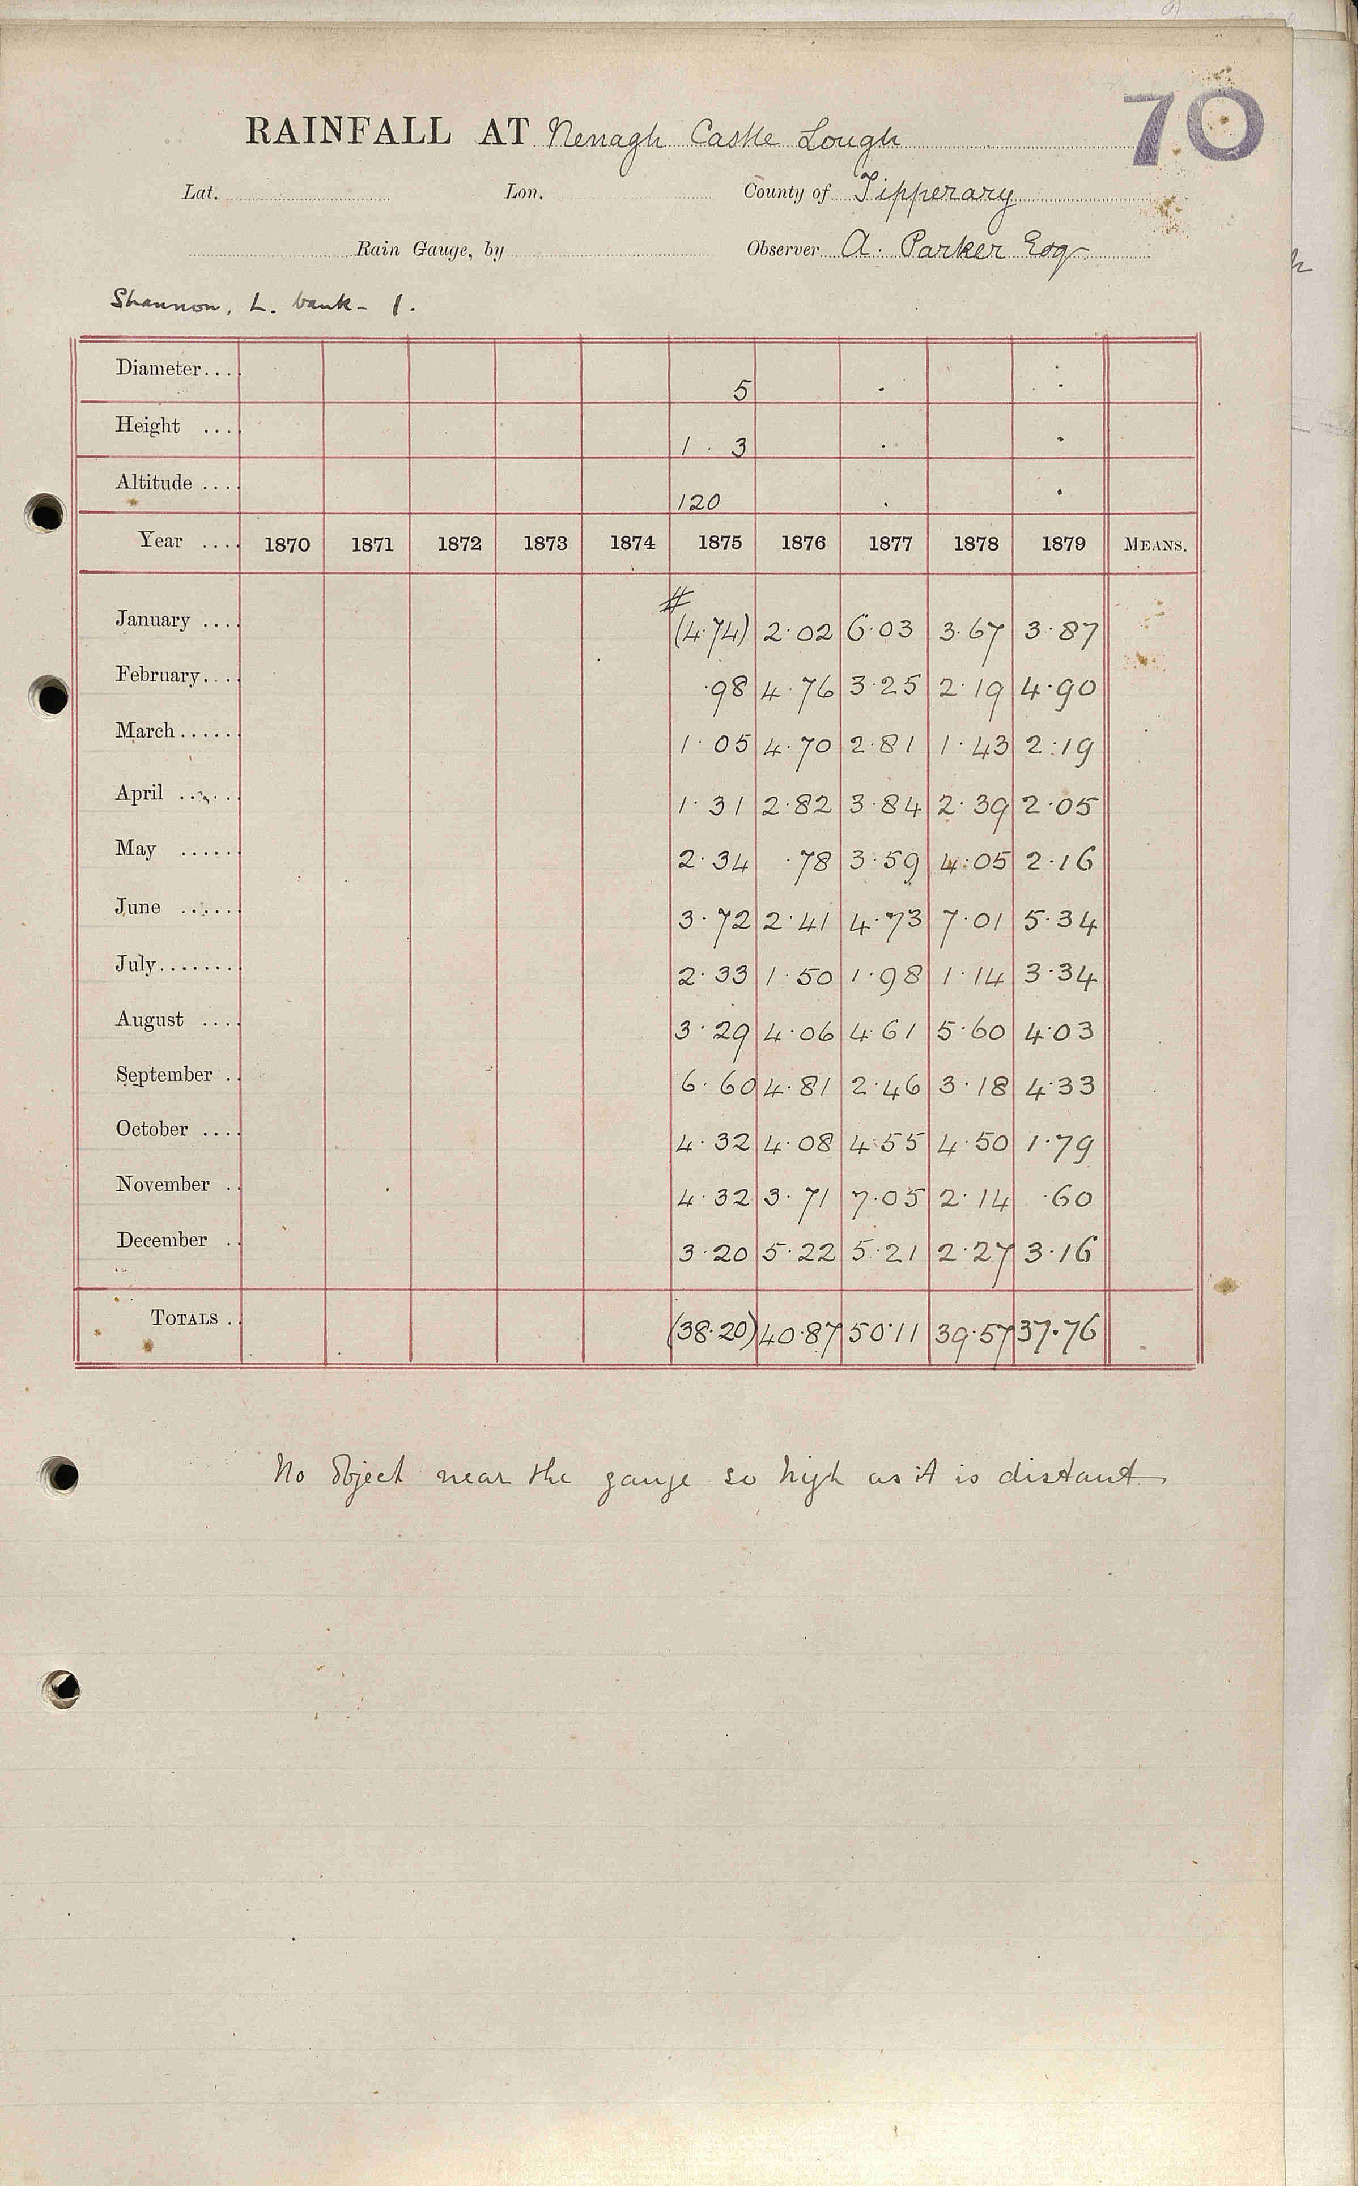 70
RAINFALL AT Nenagh Castle Lough
Lat. Lon. County of Tipperary
Rain Gauge, by Observer A. Parker Esq
Shannon, L. bank - 1.
Diameter.... 5
Height .... 1 . 3
Altitude .... 120
Year .... 1870 1871 1872 1873 1874 1875 1876 1877 1878 1879 MEANS.
#
January .... (4.74) 2.02 6.03 3.67 3.87
February.... .98 4.76 3.25 2.19 4.90
March...... 1.05 4.70 2.81 1.43 2.19
April ...... 1.31 2.82 3.84 2.39 2.05
May ...... 2.34 .78 3.59 4.05 2.16
June ...... 3.72 2.41 4.73 7.01 5.34
July........ 2.33 1.50 1.98 1.14 3.34
August .... 3.29 4.06 4.61 5.60 4.03
September .. 6.60 4.81 2.46 3.18 4.33
October .... 4.32 4.08 4.55 4.50 1.79
November .. 4.32 3.71 7.05 2.14 .60
December .. 3.20 5.22 5.21 2.27 3.16
TOTALS .. (38.20) 40.87 50.11 39.57 37.76
No object near the gauge so high as it is distant